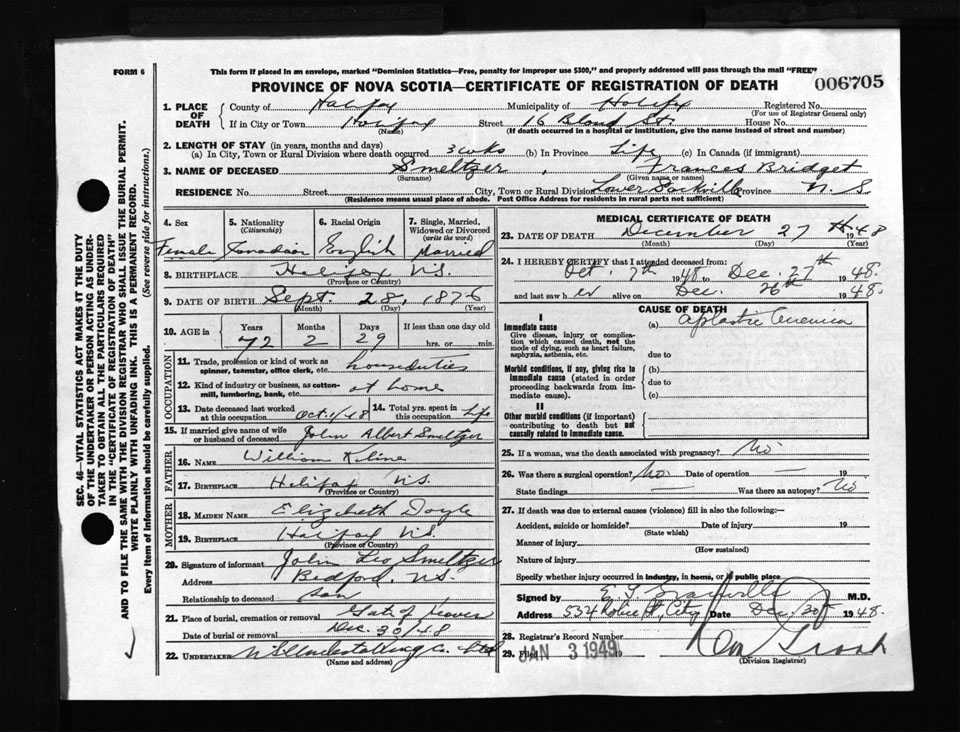 FORM 6
This form if placed in an envelope, marked "Dominion Statistics—Free, penalty for improper use $300," and properly addressed will pass through the mail "FREE"
PROVINCE OF NOVA SCOTIA—CERTIFICATE OF REGISTRATION OF DEATH
006705
1. PLACE OF DEATH
County of Halifax Municipality of Halifax Registered No.
(For use of Registrar General only)
If in City or Town Halifax Street 16 Bland St. House No.
(Name) (If death occurred in a hospital or institution, give the name instead of street and number)
2. LENGTH OF STAY (in years, months and days)
(a) In City, Town or Rural Division where death occurred 3 wks (b) In Province Life (c) In Canada (if immigrant)
3. NAME OF DECEASED Smeltzer, Frances Bridget
(Surname) (Given name or names)
RESIDENCE No. Street City, Town or Rural Division Lower Sackville Province N. S.
(Residence means usual place of abode. Post Office Address for residents in rural parts not sufficient)
4. Sex Female
5. Nationality (Citizenship) Canadian
6. Racial Origin English
7. Single, Married, Widowed or Divorced (write the word) Married
8. BIRTHPLACE Halifax N.S.
(Province or Country)
9. DATE OF BIRTH Sept. 28, 1876
(Month) (Day) (Year)
10. AGE in Years Months Days If less than one day old
72 2 29 hrs. or min.
OCCUPATION
11. Trade, profession or kind of work as spinner, teamster, office clerk, etc. house duties
12. Kind of industry or business, as cotton-mill, lumbering, bank, etc. at home
13. Date deceased last worked at this occupation Oct. 1/48
14. Total yrs. spent in this occupation Life
15. If married give name of wife or husband of deceased John Albert Smeltzer
FATHER
16. NAME William Kline
17. BIRTHPLACE Halifax N.S.
(Province or Country)
MOTHER
18. MAIDEN NAME Elizabeth Doyle
19. BIRTHPLACE Halifax N.S.
(Province or Country)
20. Signature of informant John Leo Smeltzer
Address Bedford, N.S.
Relationship to deceased son
21. Place of burial, cremation or removal Gate of Heaven
Date of burial or removal Dec. 30/48
22. UNDERTAKER N S Undertaking Co. Ltd
(Name and address)
MEDICAL CERTIFICATE OF DEATH
23. DATE OF DEATH December 27th 1948
(Month) (Day) (Year)
24. I HEREBY CERTIFY that I attended deceased from:
Oct. 7th 1948 to Dec. 27th 1948.
and last saw her alive on Dec. 26th 1948.
CAUSE OF DEATH
I
Immediate cause
Give disease, injury or complication which caused death, not the mode of dying, such as heart failure, asphyxia, asthenia, etc.
(a) Aplastic Anemia
due to
Morbid conditions, if any, giving rise to immediate cause (stated in order proceeding backwards from immediate cause).
(b)
due to
(c)
II
Other morbid conditions (if important) contributing to death but not causally related to immediate cause.
25. If a woman, was the death associated with pregnancy? No
26. Was there a surgical operation? No Date of operation — 19
State findings — Was there an autopsy? No
27. If death was due to external causes (violence) fill in also the following:—
Accident, suicide or homicide? Date of injury 19
(State which)
Manner of injury
(How sustained)
Nature of injury
Specify whether injury occurred in industry, in home, or in public place
Signed by E. F. M.D.
Address 534 St, City Date Dec. 30 1948.
28. Registrar's Record Number
29. Filed JAN 3 1949 19
(Division Registrar)
SEC. 46—VITAL STATISTICS ACT MAKES IT THE DUTY
OF THE UNDERTAKER OR PERSON ACTING AS UNDER-
TAKER TO OBTAIN ALL THE PARTICULARS REQUIRED
IN THE "CERTIFICATE OF REGISTRATION OF DEATH"
AND TO FILE THE SAME WITH THE DIVISION REGISTRAR WHO SHALL ISSUE THE BURIAL PERMIT.
WRITE PLAINLY WITH UNFADING INK. THIS IS A PERMANENT RECORD.
Every item of information should be carefully supplied. (See reverse side for instructions.)